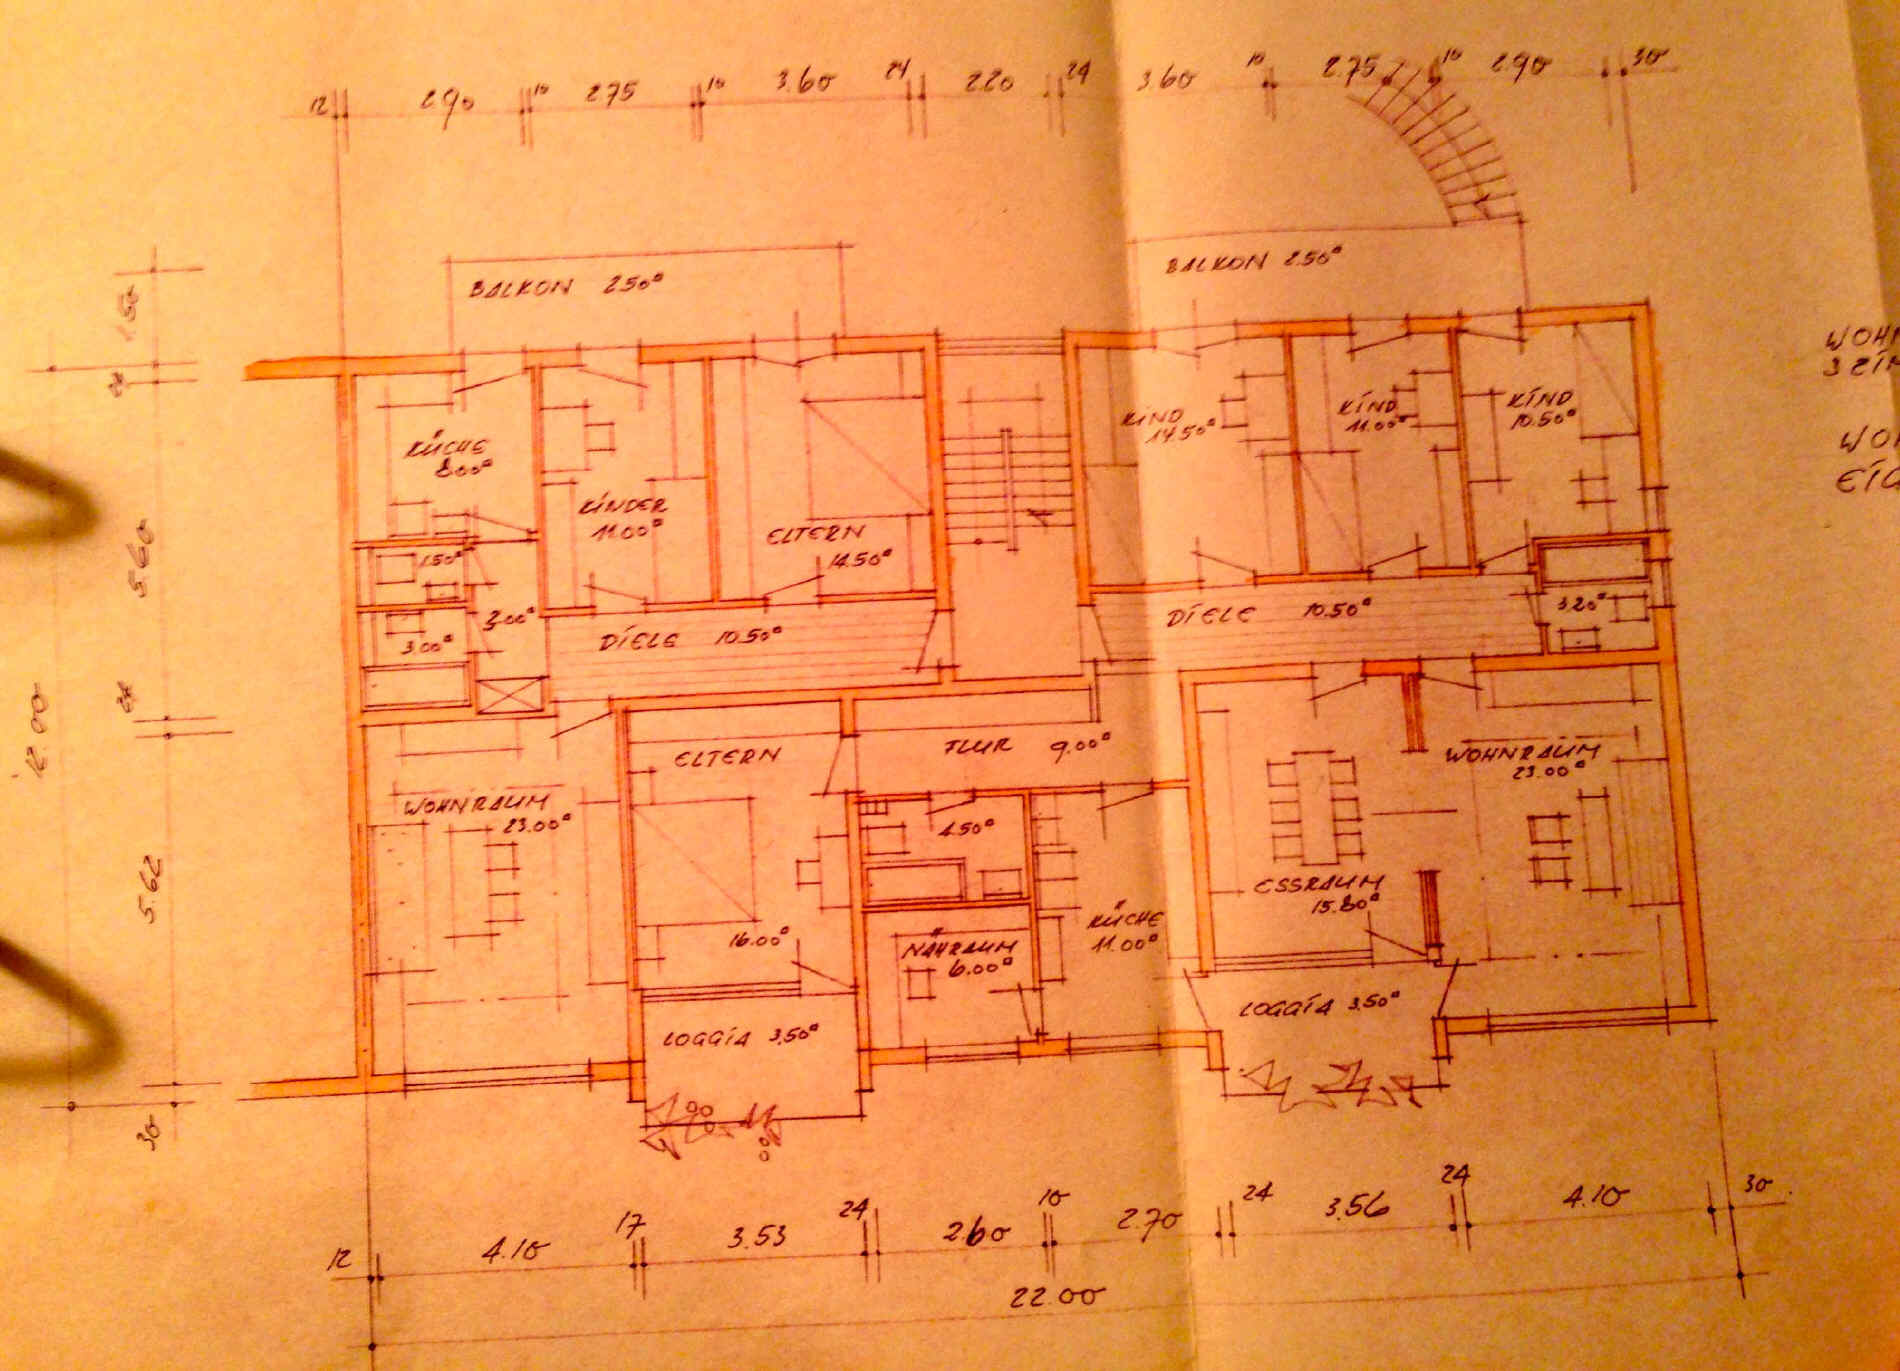 12 2.90 10 2.75 10 3.60 24 2.20 24 3.60 10 2.75 10 2.90 30
BALKON 2.50□
BALKON 2.50□
1.50
KÜCHE
8.00□
KINDER
11.00□
ELTERN
14.50□
KIND
14.50□
KIND
11.00□
KIND
10.50□
5.60
1.50□
3.00□
3.00□
DIELE 10.50□
DIELE 10.50□
3.20□
12.00
5.62
30
WOHNRAUM
23.00□
ELTERN
16.00□
FLUR 9.00□
4.50□
NÄHRAUM
6.00□
KÜCHE
11.00□
ESSRAUM
15.80□
WOHNRAUM
23.00□
LOGGIA 3.50□
LOGGIA 3.50□
12 4.10 17 3.53 24 2.60 10 2.70 24 3.56 24 4.10 30
22.00